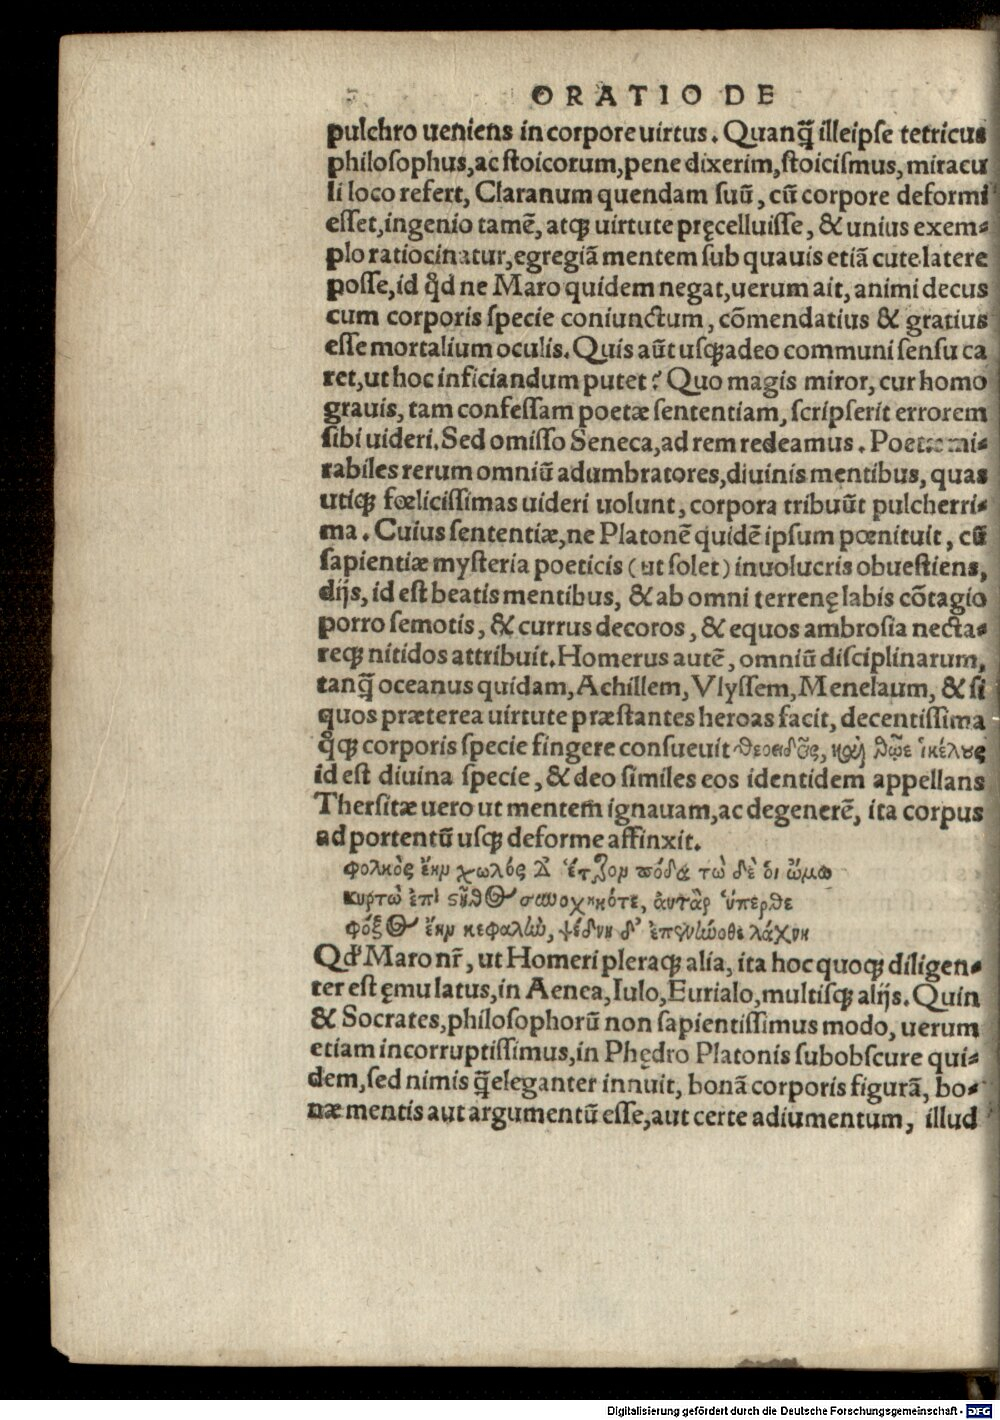 ORATIO DE
pulchro ueniens in corpore uirtus. Quanq̃ ille ipse tetricus
philosophus, ac stoicorum, pene dixerim, stoicismus, miracu
li loco refert, Claranum quendam suũ, cũ corpore deformi
esset, ingenio tamẽ, atq; uirtute pręcelluisse, & unius exem⸗
plo ratiocinatur, egregiã mentem sub quauis etiã cute latere
posse, id qd̃ ne Maro quidem negat, uerum ait, animi decus
cum corporis specie coniunctum, cõmendatius & gratius
esse mortalium oculis. Quis aũt usq; adeo communi sensu ca
ret, ut hoc inficiandum putet? Quo magis miror, cur homo
grauis, tam confessam poetæ sententiam, scripserit errorem
sibi uideri. Sed omisso Seneca, ad rem redeamus. Poetæ mi⸗
rabiles rerum omniũ adumbratores, diuinis mentibus, quas
utiq; fœlicissimas uideri uolunt, corpora tribuũt pulcherri⸗
ma. Cuius sententiæ, ne Platonẽ quidẽ ipsum pœnituit, cũ
sapientiæ mysteria poeticis (ut solet) inuolucris obuestiens,
dijs, id est beatis mentibus, & ab omni terrenę labis cõtagio
porro semotis, & currus decoros, & equos ambrosia necta⸗
req; nitidos attribuit. Homerus autẽ, omniũ disciplinarum,
tanq̃ oceanus quidam, Achillem, Vlyssem, Menelaum, & si
quos præterea uirtute præstantes heroas facit, decentissima
q̃q; corporis specie fingere consueuit θεοειδᾶς, καὶ θεῷ ἰκέλους
id est diuina specie, & deo similes eos identidem appellans
Thersitæ uero ut mentem ignauam, ac degenerẽ, ita corpus
ad portentũ usq; deforme affinxit.
φολκὸς ἔην χωλός δ' ἕτερον πόδα τὼ δὲ οἱ ὤμω
κυρτὼ ἐπὶ στῆθος συνοχωκότε, ἀυτὰρ ὑπερθε
φόξος ἔην κεφαλὼ, ψεδνὴ δ' ἐπενήνοθε λάχνη
Qd' Maro nr̃, ut Homeri pleraq; alia, ita hoc quoq; diligen⸗
ter est ęmulatus, in Aenea, Iulo, Eurialo, multisq; alijs. Quin
& Socrates, philosophorũ non sapientissimus modo, uerum
etiam incorruptissimus, in Phędro Platonis subobscure qui⸗
dem, sed nimis q̃ eleganter innuit, bonã corporis figurã, bo⸗
næ mentis aut argumentũ esse, aut certe adiumentum, illud
Digitalisierung gefördert durch die Deutsche Forschungsgemeinschaft - DFG